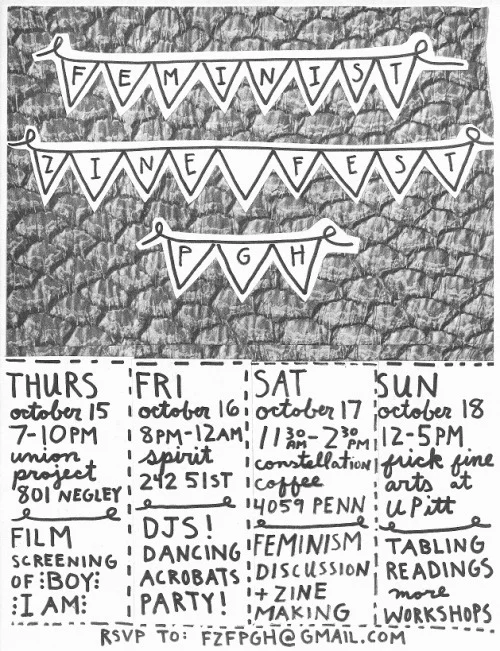 FEMINIST
ZINE FEST
PGH
THURS
october 15
7-10PM
union
project
801 NEGLEY
FILM
SCREENING
OF :BOY:
:I AM:
FRI
october 16
8PM-12AM
spirit
242 51ST
DJS!
DANCING
ACROBATS
PARTY!
SAT
october 17
11 30 AM - 2 30 PM
constellation
coffee
4059 PENN
FEMINISM
DISCUSSION
+ ZINE
MAKING
SUN
october 18
12-5PM
frick fine
arts at
U Pitt
TABLING
READINGS
more
WORKSHOPS
RSVP TO: FZFPGH@GMAIL.COM